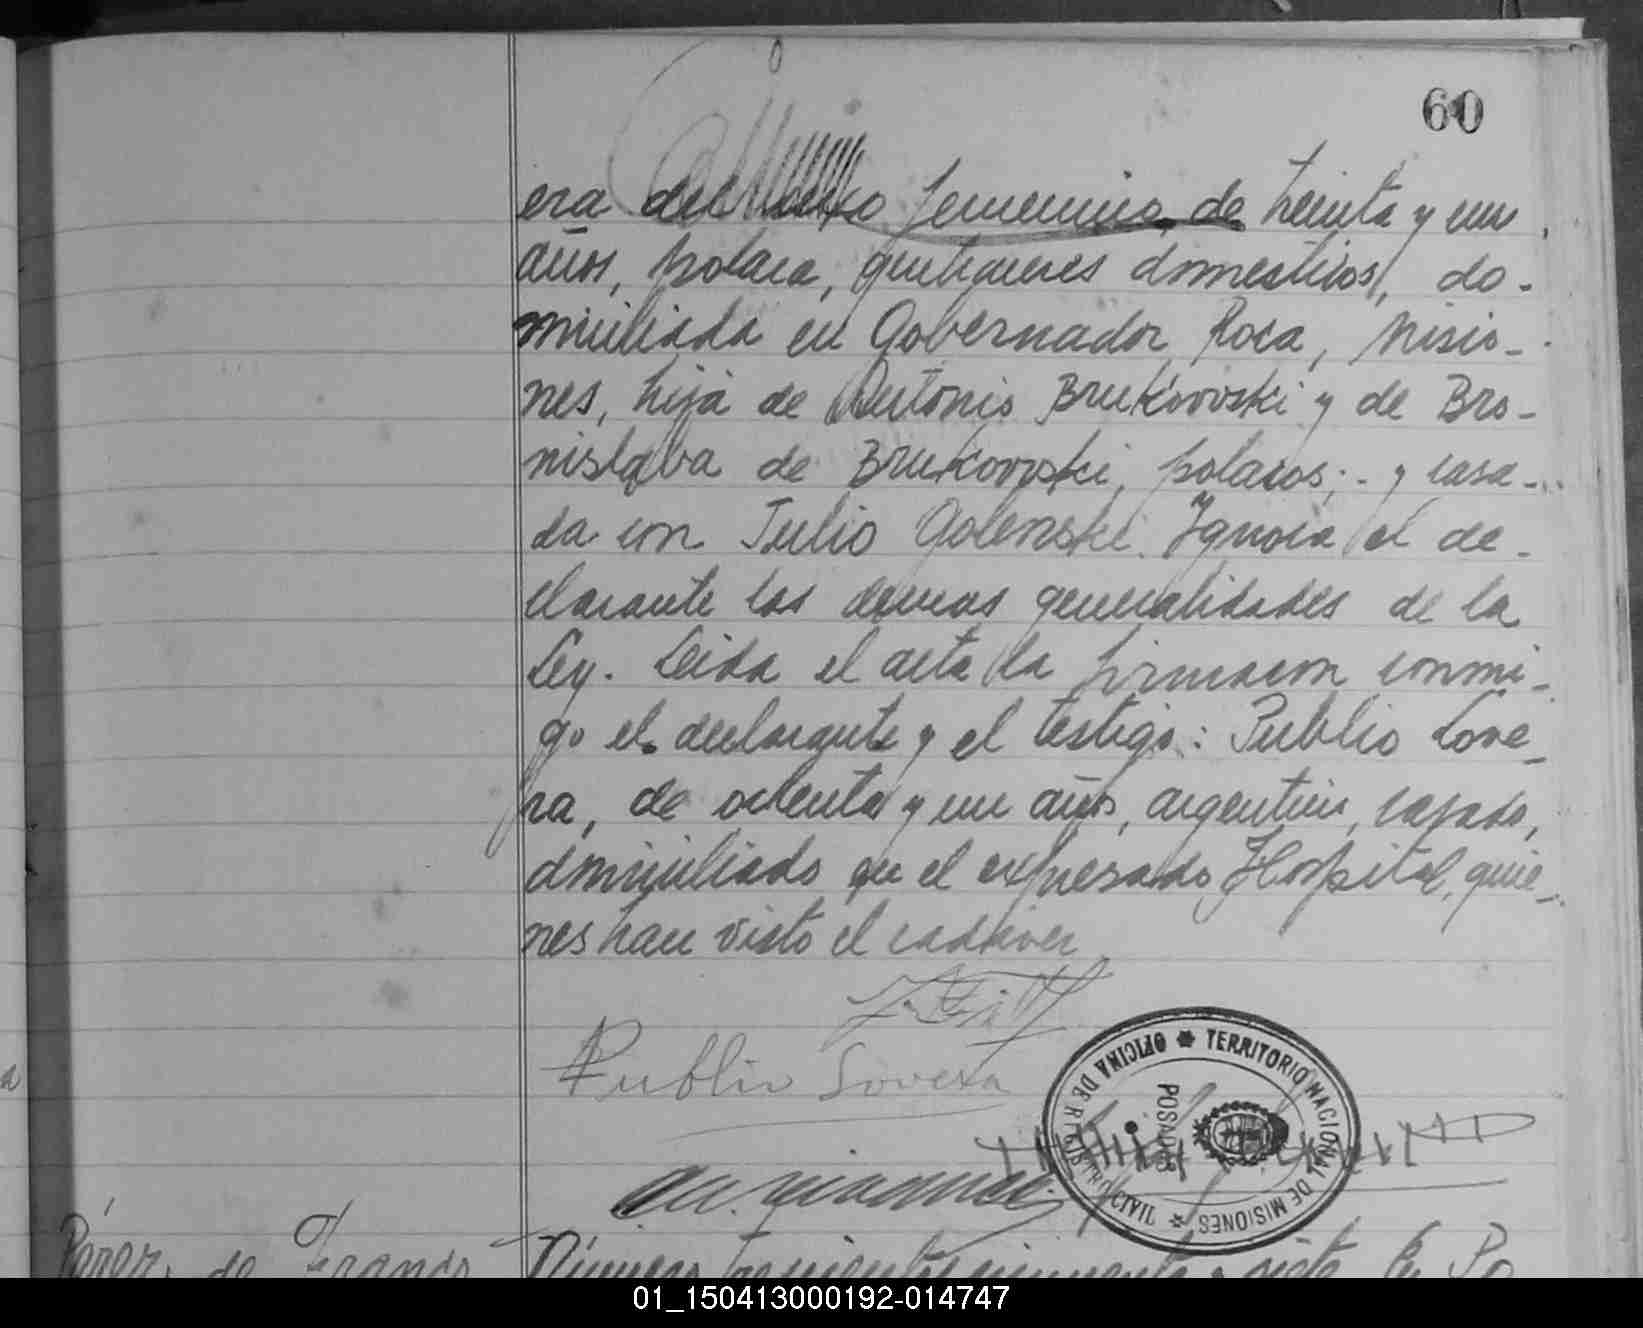 60
era del sexo femenino, de treinta y un
años, polaca, quehaceres domesticos, do-
miciliada en Gobernador Roca, Misio-
nes, hija de Antonio Brukovvski y de Bro-
nislava de Brukovvski, polacos; - y casa-
da con Julio Golenski. Ignora el de-
clarante las demas generalidades de la
Ley. Leida el acta la firmaron conmi-
go el declarante y el testigo: Publio Love-
ra, de ochenta y un años, argentino, casado,
domiciliado en el expresado Hospital, quie-
nes han visto el cadaver
Publio Lovera
OFICINA DE REGISTRO CIVIL * TERRITORIO NACIONAL DE MISIONES *
POSADAS
Pérez, de Franco
Número trescientos cincuenta y siete En Po
01_150413000192-014747